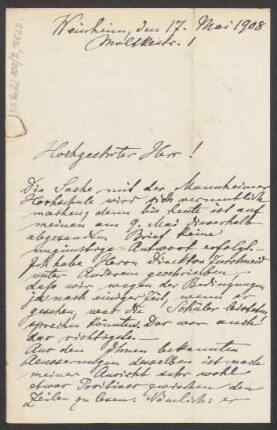 Weinheim, den 17. Mai 1908
Moltkestr. 1
Hochgeehrter Herr!
Die Sache mit der Mannheimer
Hochschule wird sich vermutlich
machen, denn bis heute ist auf
meinen am 9. Mai dieserhalb
abgesandten Brief keine
ungünstige Antwort erfolgt.
Ich habe Herrn Direktor
unter Anderem geschrieben,
dass wir wegen der Bedingungen
ja nach einiger Zeit, wenn er
gesehen, was die Schüler leisten,
sprechen könnten. Das war auch
das richtigste.
Aus den Ihnen bekannten
Aeusserungen desselben ist nach
meiner Ansicht sehr wohl
etwas Positives zwischen den
Zeilen zu lesen. Nämlich: er